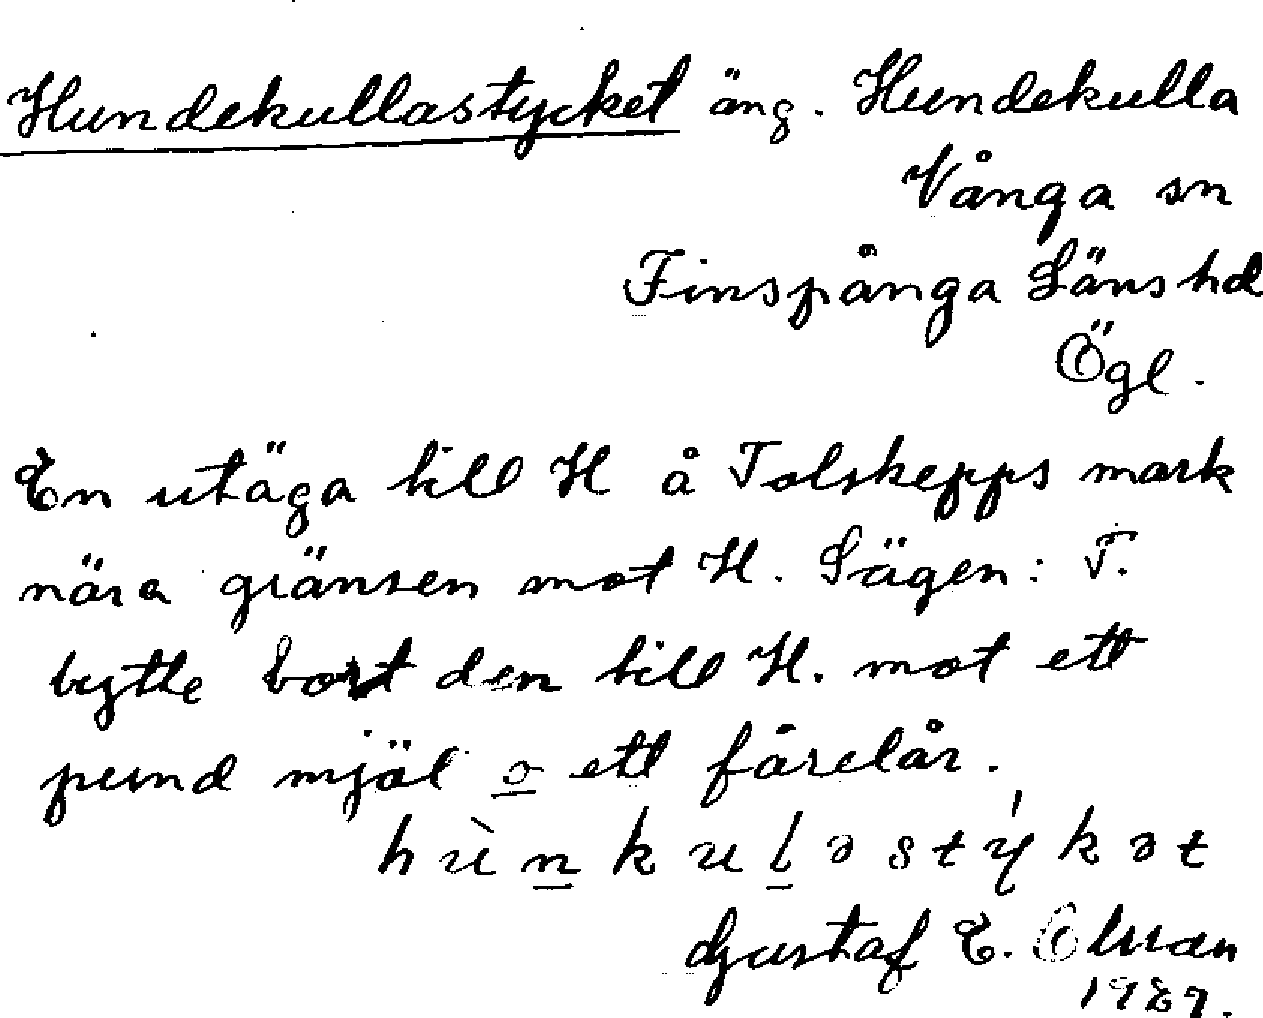 Hundekullastycket äng. Hundekulla
Vånga sn
Finspånga Läns hd
Ögl.
En utäga till H å Tolskepps mark
nära gränsen mot H. Sägen: T.
bytte bort den till H. mot ett
pund mjöl o ett fårelår.
hùnkuləstýkət
Gustaf E.